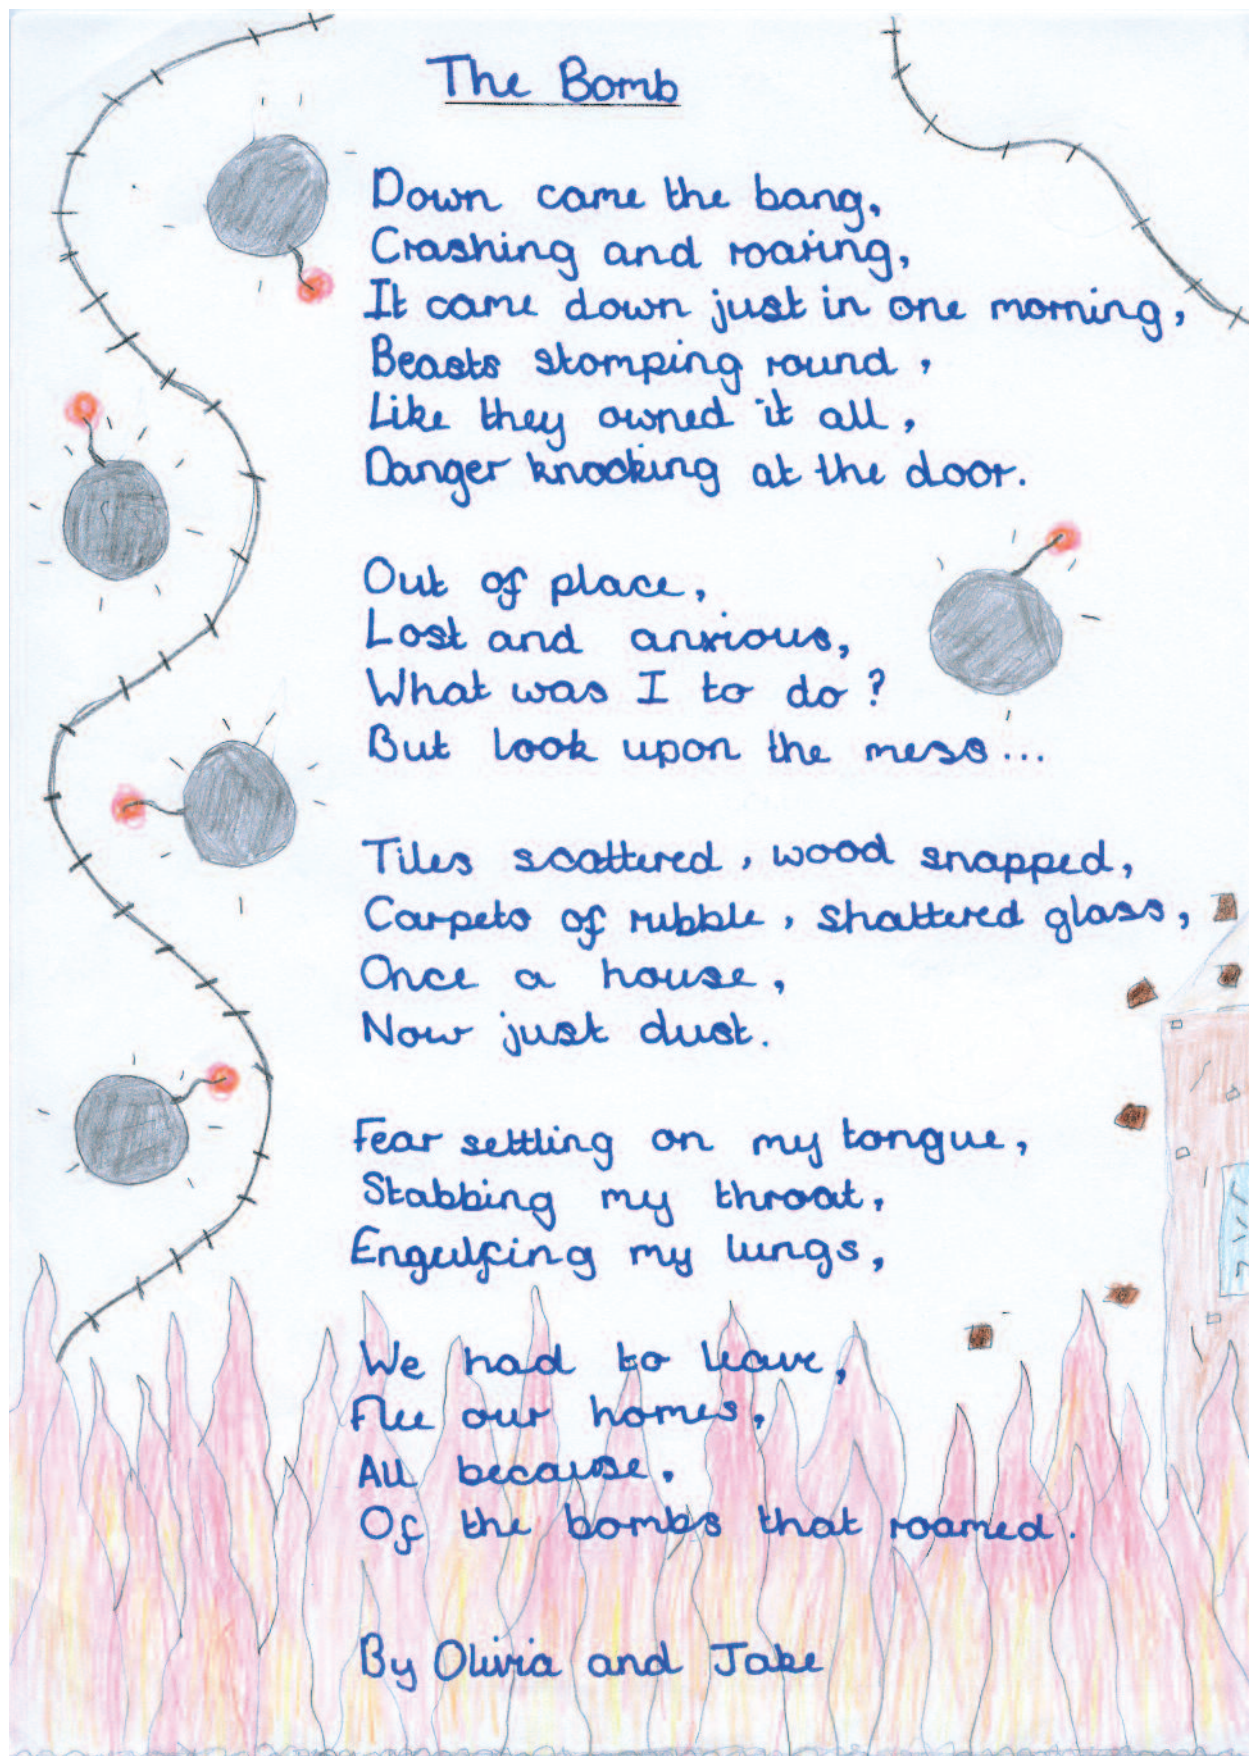 The Bomb
Down came the bang,
Crashing and roaring,
It came down just in one morning,
Beasts stomping round,
Like they owned it all,
Danger knocking at the door.
Out of place,
Lost and anxious,
What was I to do?
But look upon the mess...
Tiles scattered, wood snapped,
Carpets of rubble, shattered glass,
Once a house,
Now just dust.
Fear settling on my tongue,
Stabbing my throat,
Engulfing my lungs,
We had to leave,
Flee our homes,
All because,
Of the bombs that roamed.
By Olivia and Jake